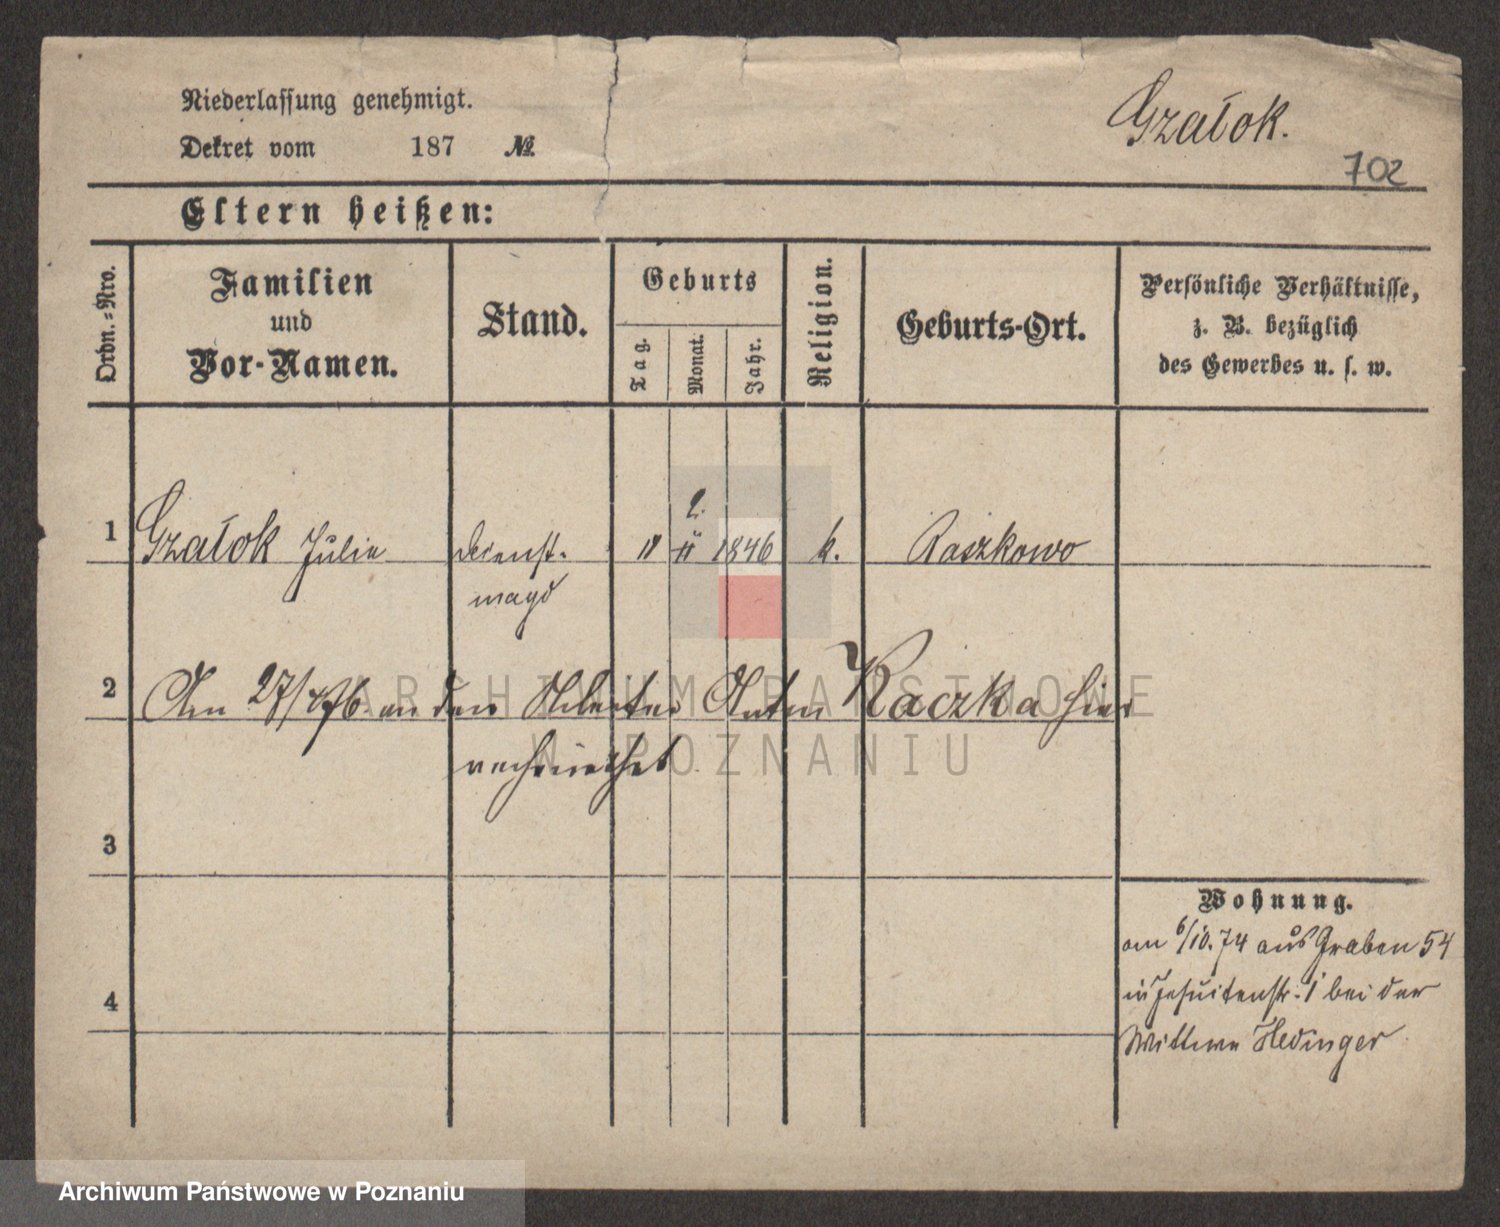 Niederlassung genehmigt.
Dekret vom 187 №
Gzałok.
702
Eltern heißen:
Ordn.=Nro.
Familien
und
Vor-Namen.
Stand.
Geburts
Tag.
Monat.
Jahr.
Religion.
Geburts-Ort.
Persönliche Verhältnisse,
z. B. bezüglich
des Gewerbes u. s. w.
1 Gzałok Julie Dienst- 1846 k. Raszkowo
magd
2 Am 27/ 76 an den Arbeiter Anton Kaczka hier
verheirathet
3
Wohnung.
am 6/10.74 aus Graben 54
in Jesuitenstr. 1 bei der
Wittwe Hedinger
4
ARCHIWUM PAŃSTWOWE
W POZNANIU
Archiwum Państwowe w Poznaniu